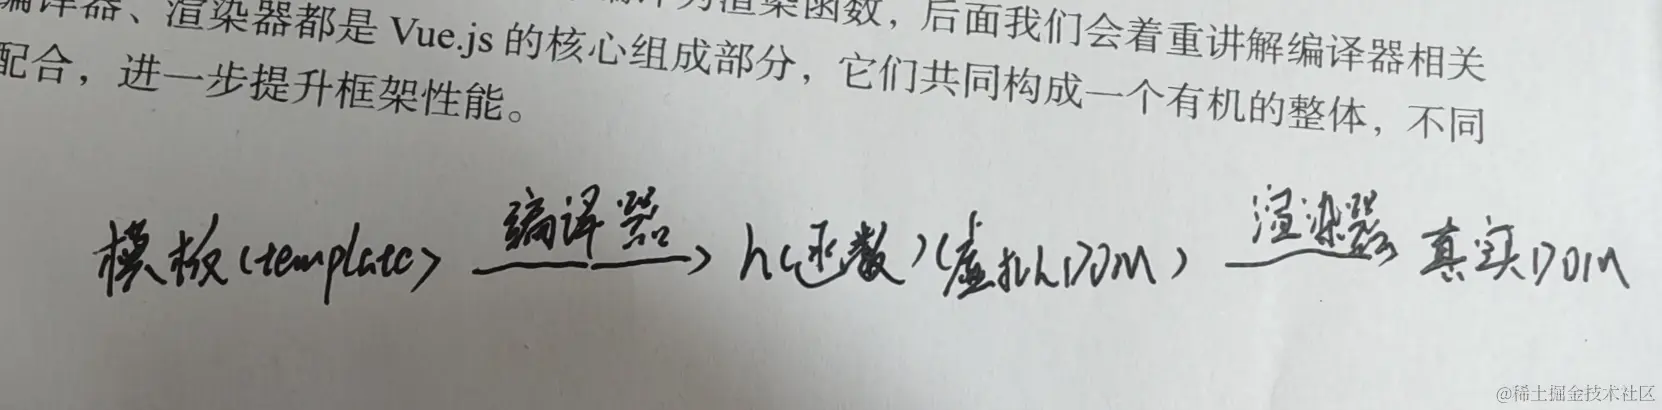 编译器、渲染器都是 Vue.js 的核心组成部分，它们共同构成一个有机的整体，不同
渲染函数，后面我们会着重讲解编译器相关
配合，进一步提升框架性能。
模板(template) 编译器 h(函数)(虚拟DOM) 渲染器 真实DOM
@稀土掘金技术社区